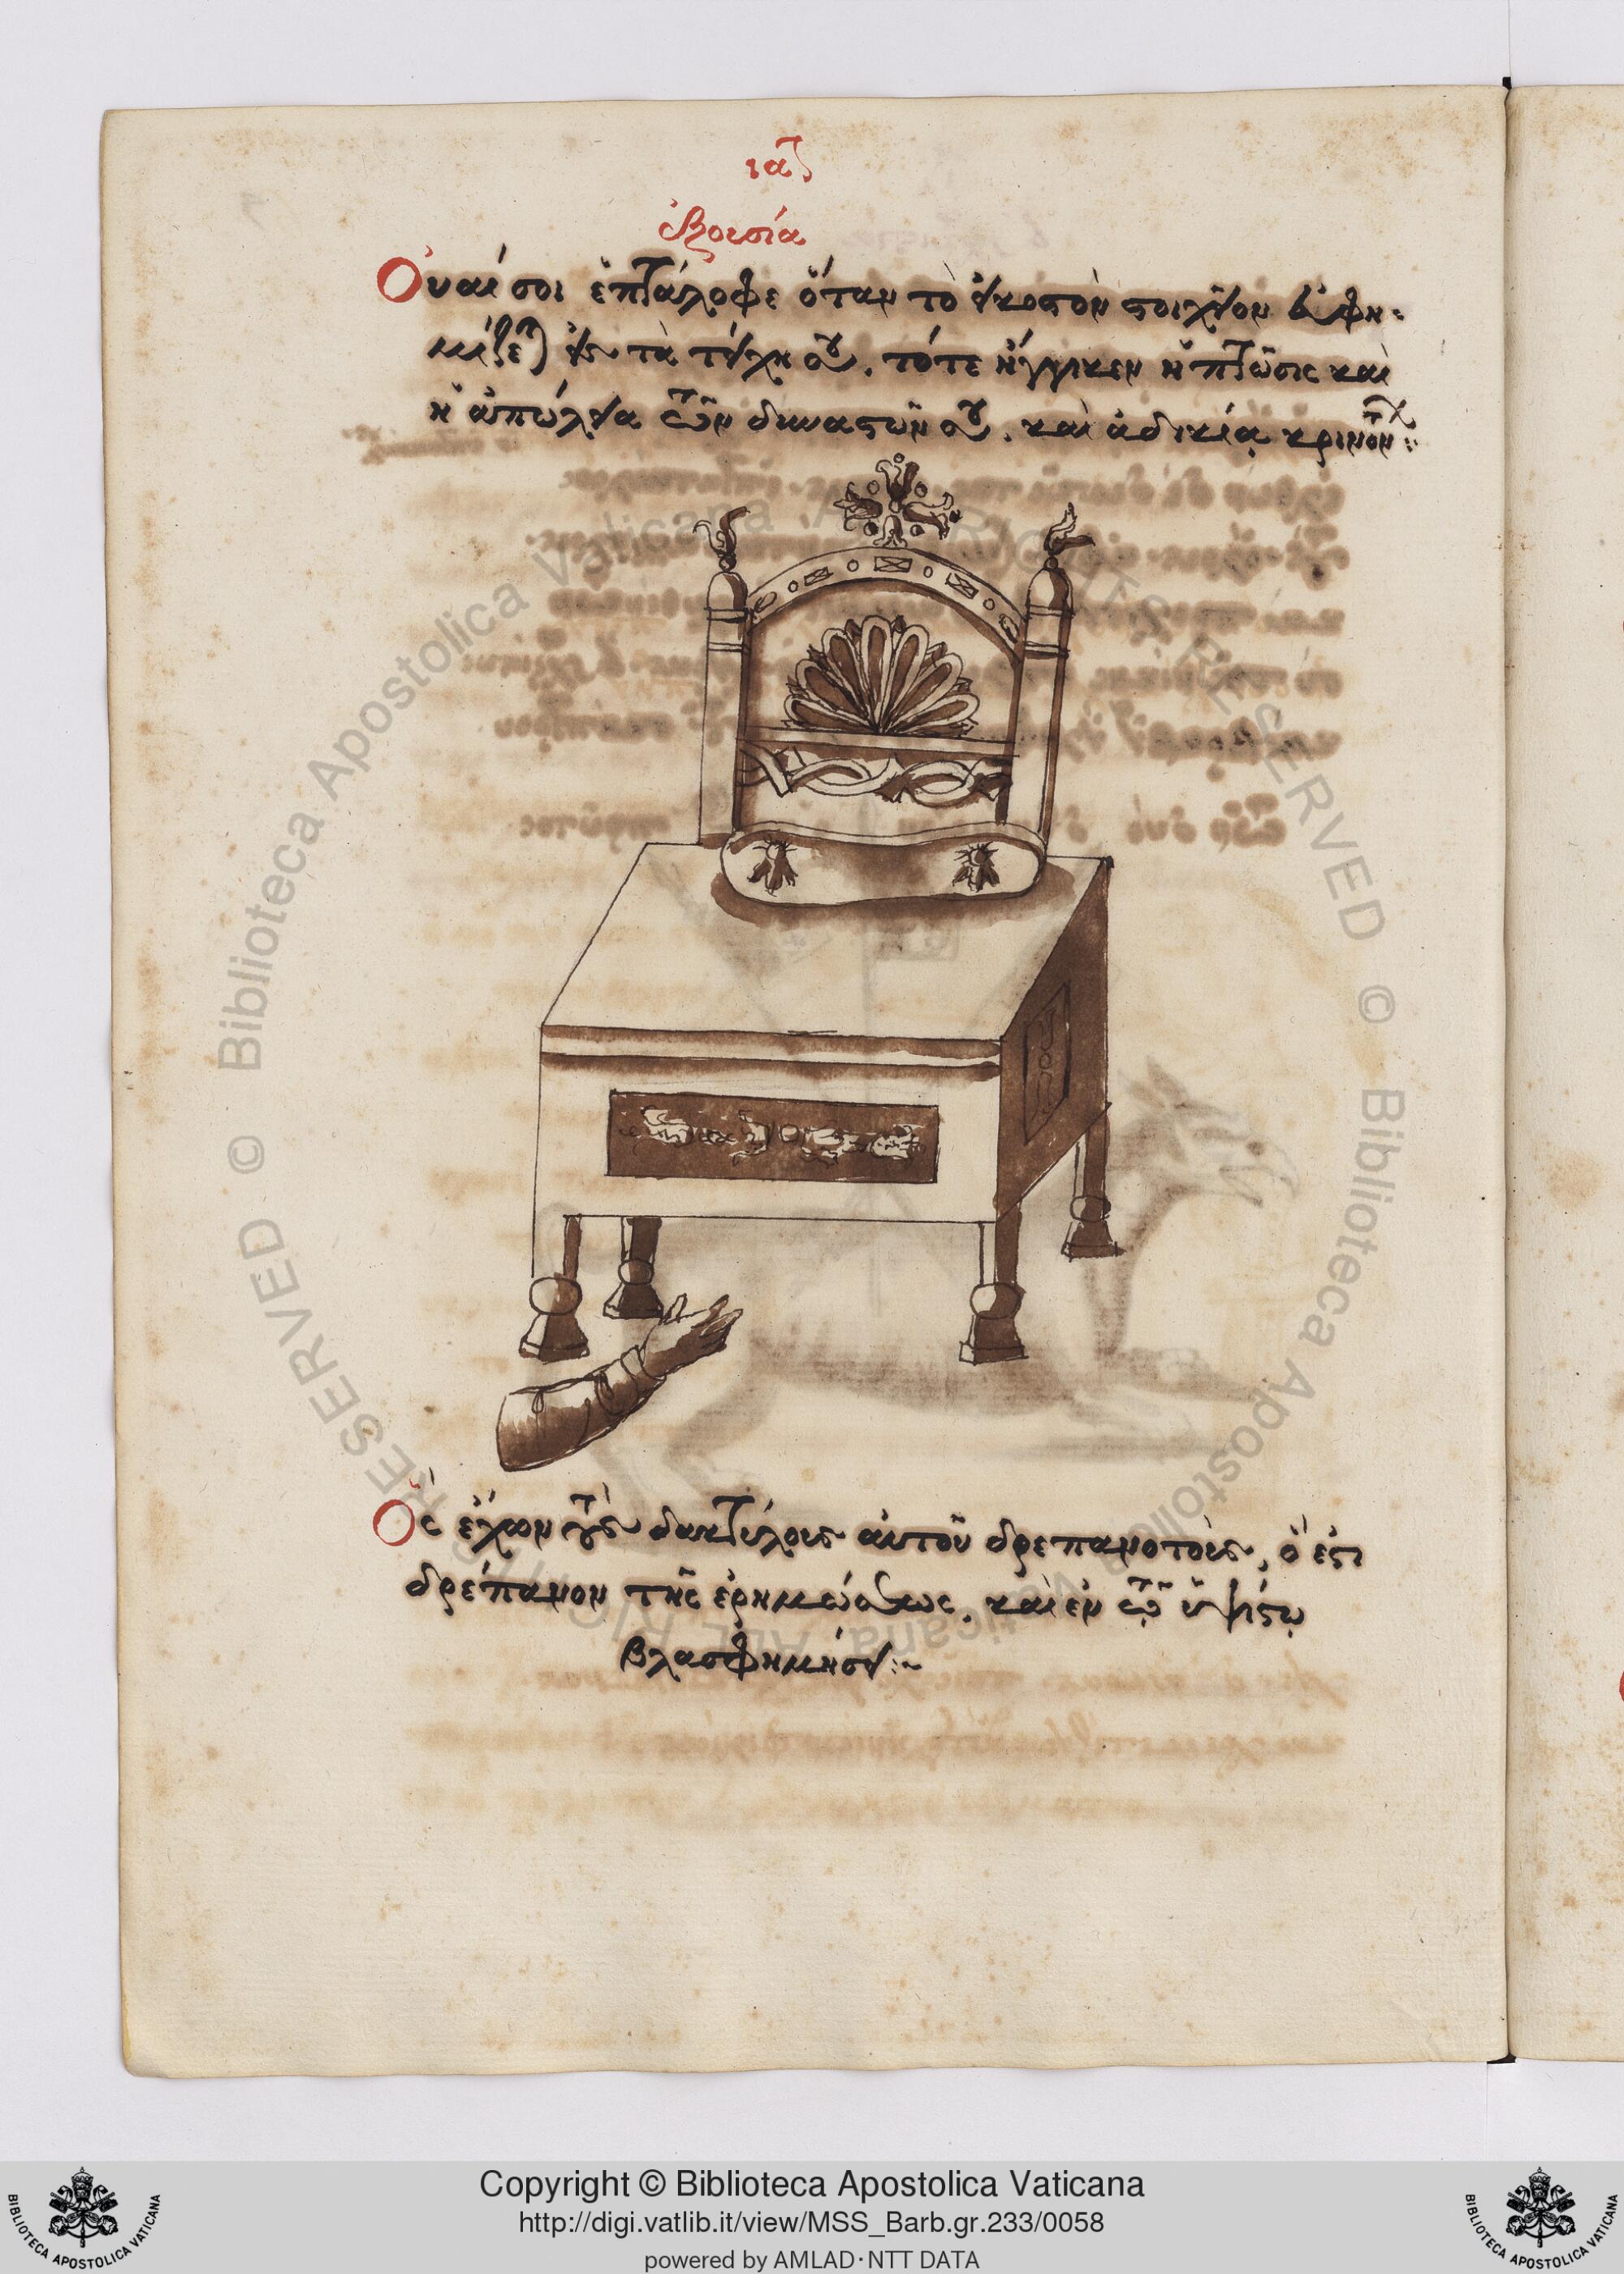 ια
ἐξουσία
Οὐαί σοι ἑπτάλοφε ὅταν τὸ εἰκοστὸν στοιχεῖον εὐφη-
μίζεται εἰς τὰ τείχη σου. τότε ἤγγικεν ἡ πτῶσις καὶ
ἡ ἀπώλεια τῶν δυναστῶν σου. καὶ ἀδικίᾳ κρινόντων:
Ὃς ἔχων τοὺς δακτύλους αὐτοῦ δρεπανοτοὺς, ὅ ἐστι
δρέπανον τῆς ἐρημώσεως. καὶ ἐν τῷ ὑψίστῳ
βλασφημήσει:~
© Biblioteca Apostolica Vaticana ALL RIGHTS RESERVED
© Biblioteca Apostolica Vaticana ALL RIGHTS RESERVED
Copyright © Biblioteca Apostolica Vaticana
http://digi.vatlib.it/view/MSS_Barb.gr.233/0058
powered by AMLAD·NTT DATA
BIBLIOTECA APOSTOLICA VATICANA
BIBLIOTECA APOSTOLICA VATICANA